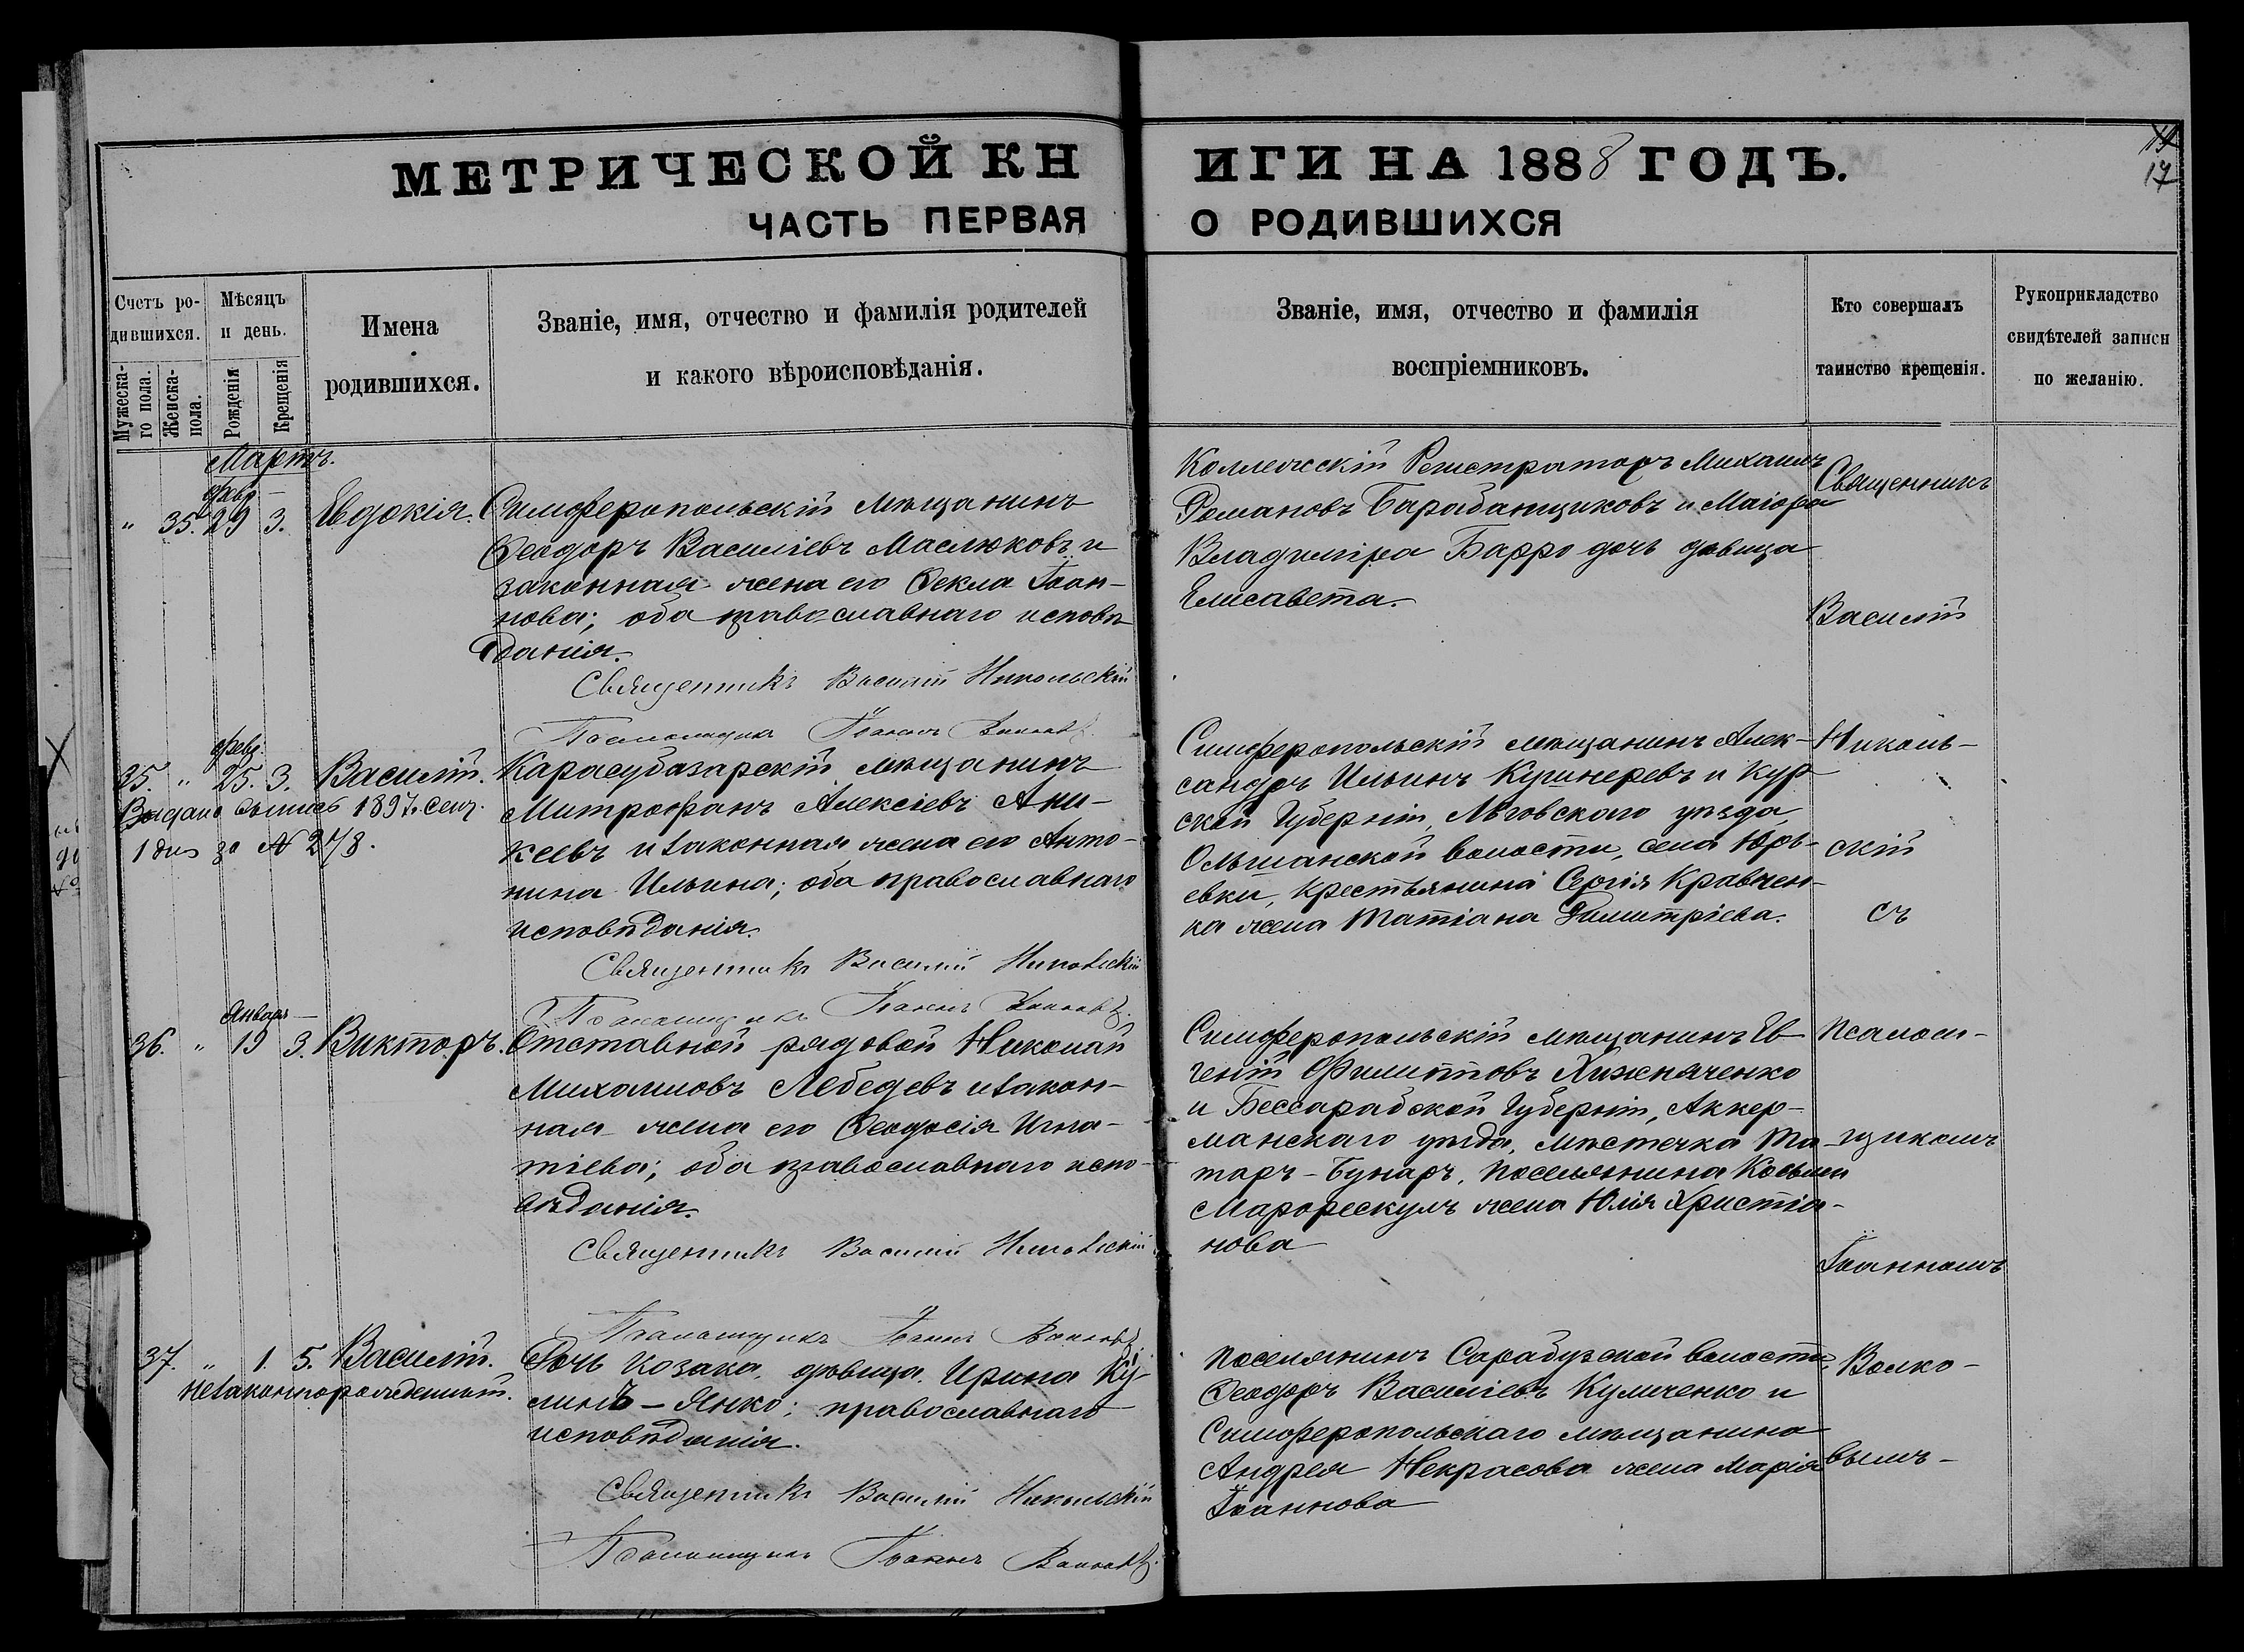 МЕТРИЧЕСКОЙ КН
ИГИ НА 1888 ГОДЪ.
17
ЧАСТЬ ПЕРВАЯ
О РОДИВШИХСЯ
Счетъ ро-
дившихся.
Мужеска-
го пола.
Женска-
пола.
Мѣсяцъ
и день.
Рожденія
Крещенія
Имена
родившихся.
Званіе, имя, отчество и фамилія родителей
и какого вѣроисповѣданія.
Званіе, имя, отчество и фамилія
воспріемниковъ.
Кто совершалъ
таинство крещенія.
Рукоприкладство
свидѣтелей записи
по желанію.
Мартъ.
февр
" 35. 29 3. Евдокія.
Симферопольскій мѣщанинъ
Ѳеодоръ Василіевъ Маслюковъ и
законная жена его Ѳекла Іоан-
нова; оба православнаго исповѣ
данія.
Священникъ Василій Никольскій
Псаломщикъ Іоаннъ
Коллежскій Регистраторъ Михаилъ
Романовъ Барабанщиковъ и Маіора
Владиміра Барро дочь дѣвица
Елисавета.
Священникъ
Василій
февр.
35. " 25. 3. Василій.
Выдана выпись 1897. Сен.
1 дня за № 278.
Карасубазарскій мѣщанинъ
Митрофанъ Алексіевъ Ани-
кеевъ и законная жена его Анто-
нина Ильина; оба православнаго
исповѣданія.
Священникъ Василій Никольскій
Псаломщикъ Іоаннъ
Симферопольскій мѣщанинъ Алек-
сандръ Ильинъ Кушнеревъ и Кур
ской Губерніи, Льговскаго уѣзда,
Ольшанской волости, села Юрь-
евки, крестьянина Сергія Кравчен-
ка жена Татіана Димитріева.
Николь-
скій
съ
Январ
36. " 19 3. Викторъ.
Отставной рядовой Николай
Михаиловъ Лебедевъ и закон-
ная жена его Ѳеодосія Игна-
тіева; оба православнаго испо-
вѣданія.
Священникъ Василій Никольскій
Псаломщикъ Іоаннъ
Симферопольскій мѣщанинъ Ев
геній Филипповъ Хижняченко
и Бессарабской Губерніи, Аккер-
манскаго уѣзда, мѣстечка Та-
таръ-Бунаръ, поселянина Косьмы
жена Юлія Христіа-
нова
Псалом-
щикомъ
Іоанномъ
37. " 1. 5. Василій.
незаконнорожденный.
Дочь козака, дѣвица Ирина Ку-
линъ-Янко; православнаго
исповѣданія.
Священникъ Василій Никольскій
Псаломщикъ Іоаннъ
Поселянинъ Сарабузской волости,
Ѳеодоръ Василіевъ Куличенко и
Симферопольскаго мѣщанина
Андрея Некрасова жена Марія
Іоаннова
Волко-
вымъ-